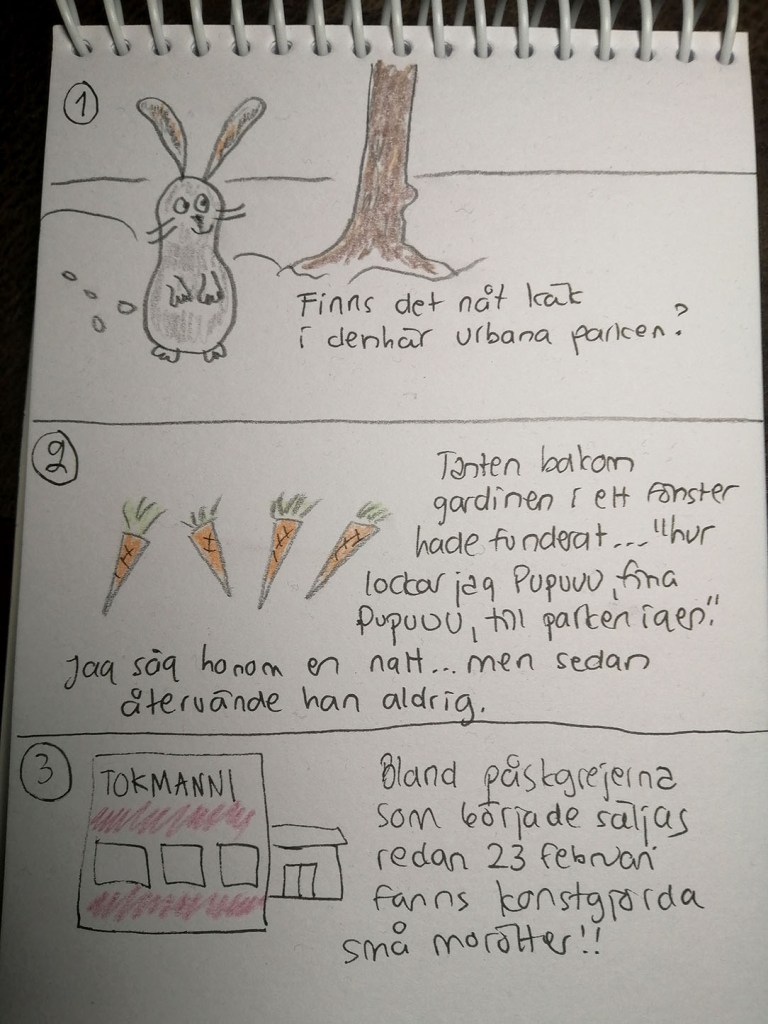 1
Finns det nåt käk
i denhär urbana parken?
2
Tanten bakom
gardinen i ett fönster
hade funderat... "hur
lockar jag Pupuuu, fina
Pupuuu, till parken igen".
Jag såg honom en natt... men sedan
återvände han aldrig.
3
TOKMANNI
Bland påskgrejerna
som började säljas
redan 23 februari
fanns konstgjorda
små morötter!!